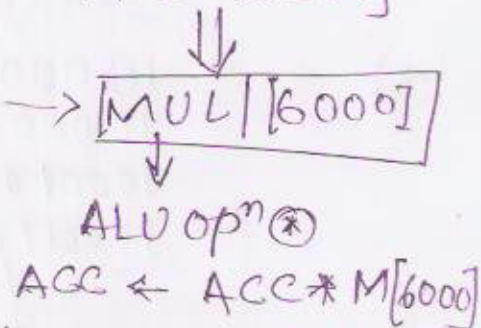 MUL [6000]
ALU opⁿ ⊛
ACC ← ACC * M[6000]